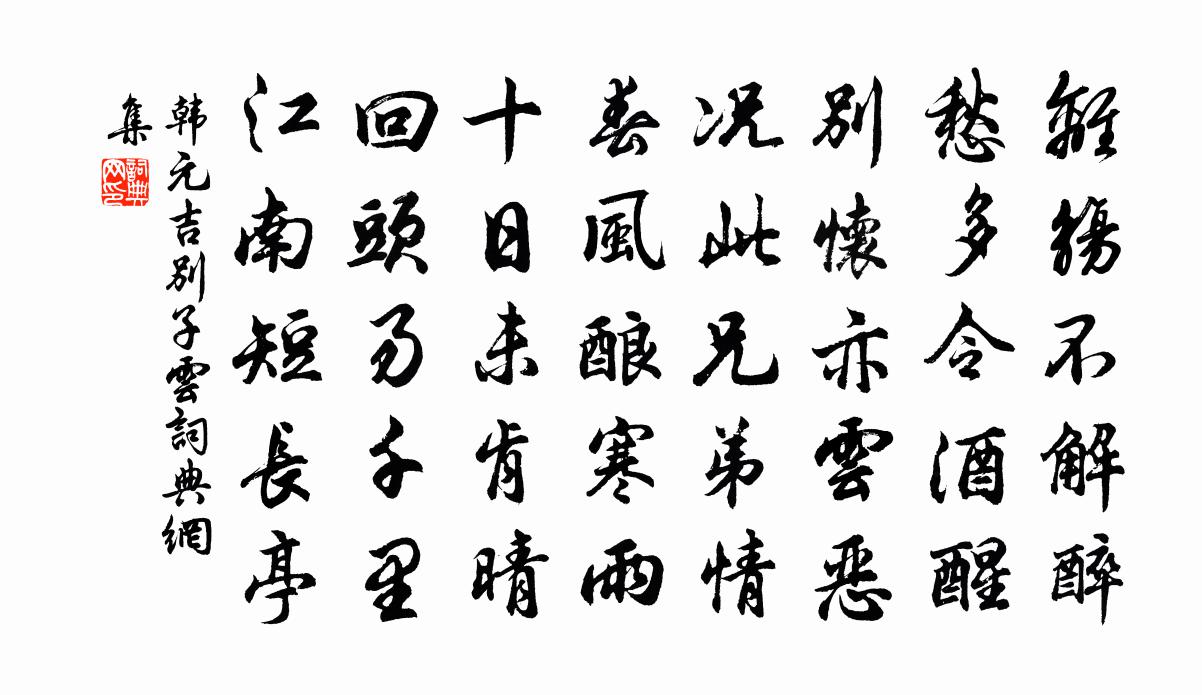 離觴不解醉
愁多令酒醒
別懷亦雲惡
况此兄弟情
春風酿寒雨
十日未肯晴
回頭易千里
江南短長亭
韩元吉別子雲詞典網
集
詞典
网印